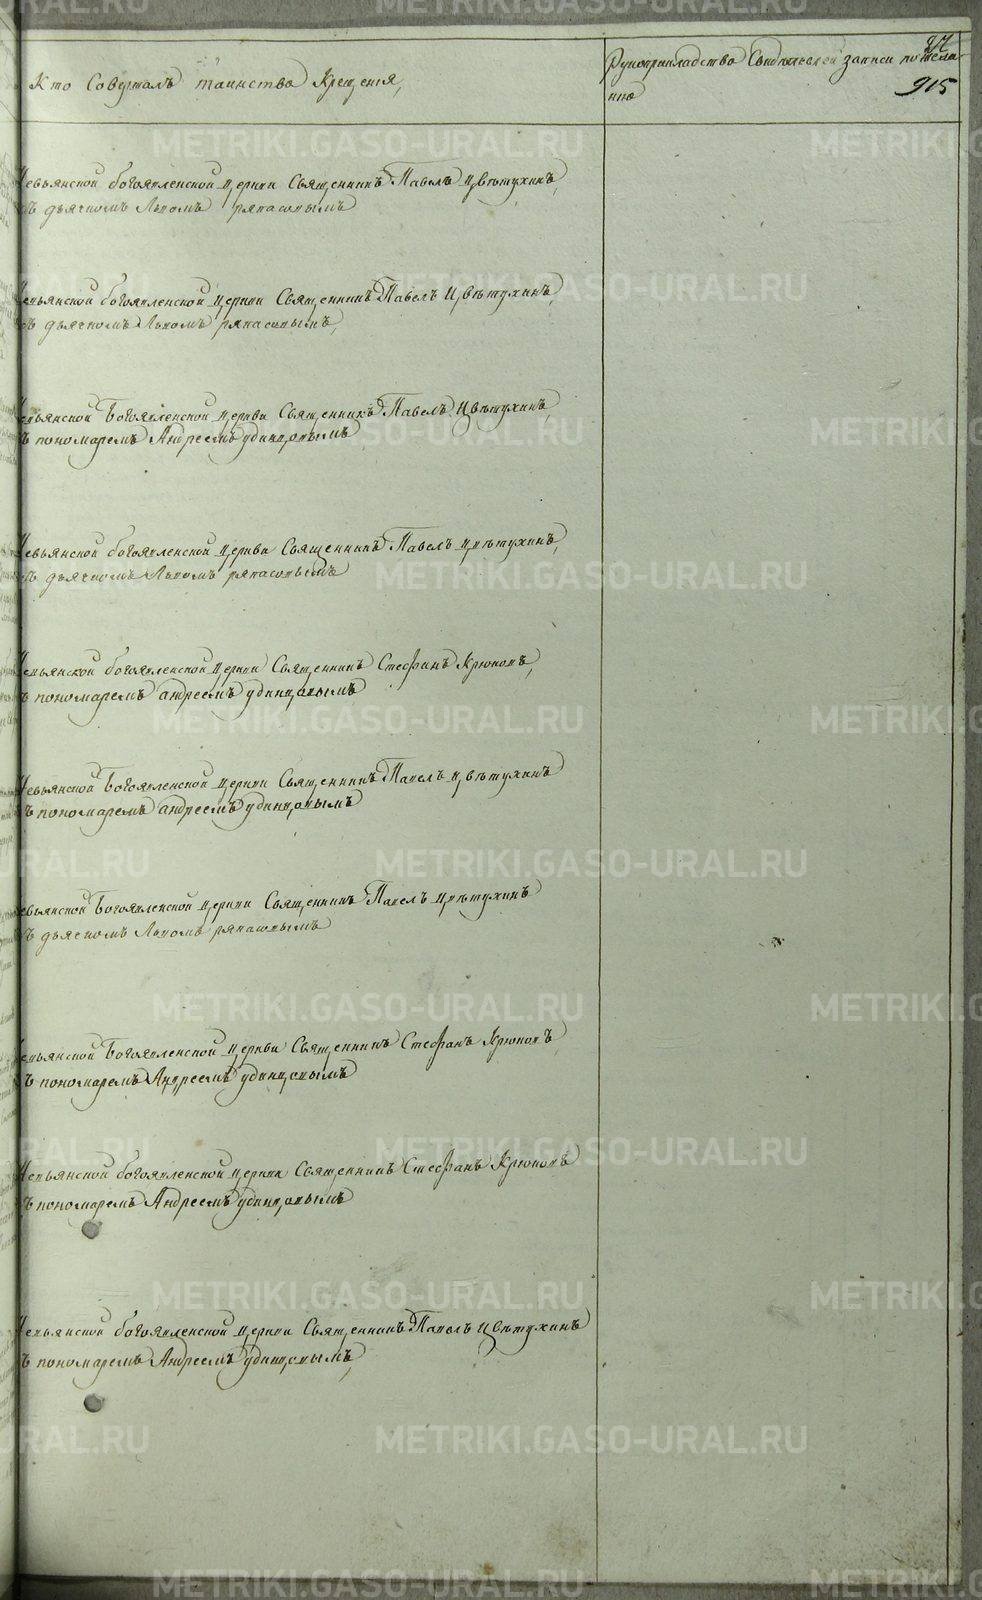 27
915
Кто Совершалъ таинство Крещенія,
Рукоприкладство Свидѣтелей записи по жела-
нію
Невьянской богоявленской церкви Священникъ Павелъ Цвѣтухинъ,
съ дьячкомъ Львомъ ряпасовымъ
Невьянской богоявленской церкви Священникъ Павелъ Цвѣтухинъ,
съ дьячкомъ Львомъ ряпасовымъ,
Невьянской Богоявленской церкви Священникъ Павелъ Цвѣтухинъ,
съ пономаремъ Андреемъ удинцовымъ
Невьянской богоявленской церкви Священникъ Павелъ Цвѣтухинъ,
съ дьячкомъ Львомъ ряпасовымъ
Невьянской богоявленской церкви Священникъ Стефанъ Крюковъ,
съ пономаремъ андреемъ удинцовымъ
Невьянской Богоявленской церкви Священникъ Павелъ Цвѣтухинъ
съ пономаремъ андреемъ удинцовымъ
Невьянской Богоявленской церкви Священникъ Павелъ Цвѣтухинъ
съ дьячкомъ Львомъ ряпасовымъ
Невьянской Богоявленской церкви Священникъ Стефанъ Крюковъ,
съ пономаремъ Андреемъ удинцовымъ
Невьянской богоявленской церкви Священникъ Стефанъ Крюковъ
съ пономаремъ Андреемъ удинцовымъ
Невьянской богоявленской церкви Священникъ Павелъ Цвѣтухинъ
съ пономаремъ Андреемъ удинцовымъ,
METRIKI.GASO-URAL.RU